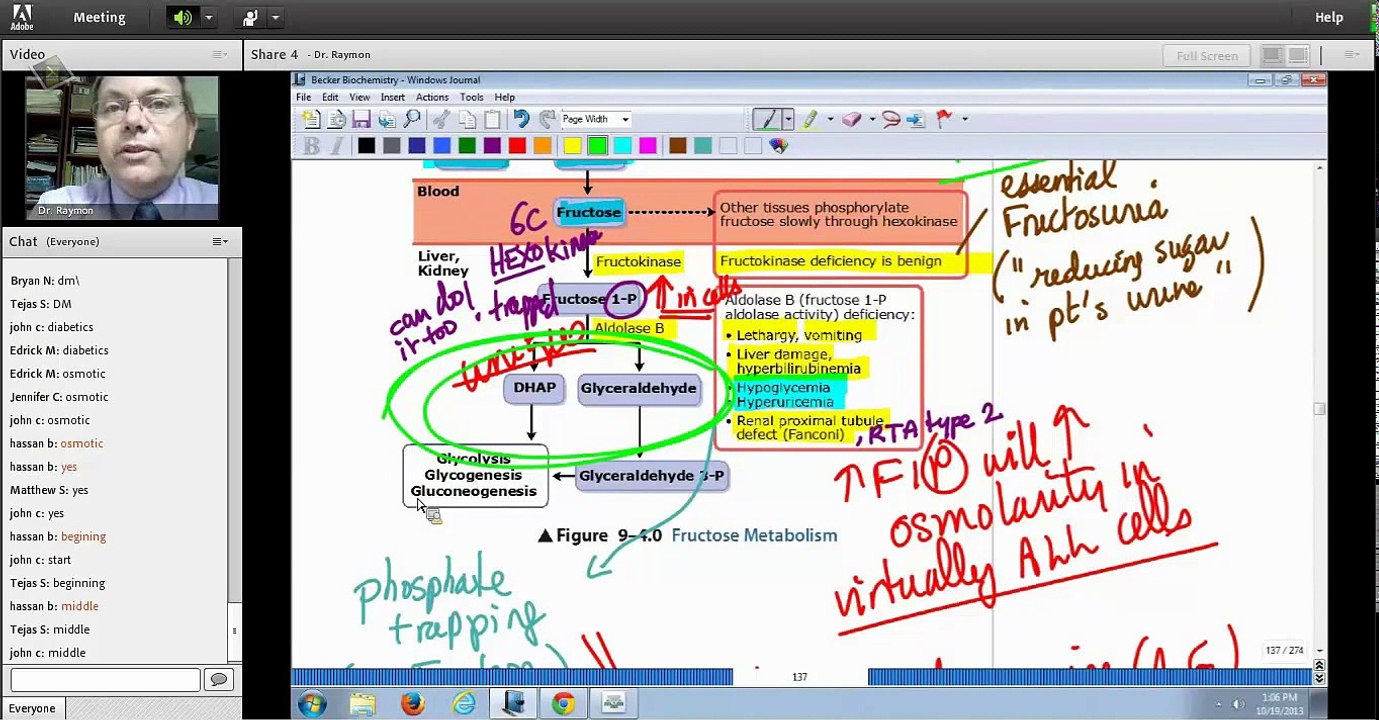 Adobe
Meeting
Help
Video
Share 4 - Dr. Raymon
Full Screen
Dr. Raymon
Chat (Everyone)
Bryan N: dm\
Tejas S: DM
john c: diabetics
Edrick M: diabetics
Edrick M: osmotic
Jennifer C: osmotic
john c: osmotic
hassan b: osmotic
hassan b: yes
Matthew S: yes
john c: yes
hassan b: begining
john c: start
Tejas S: beginning
hassan b: middle
Tejas S: middle
john c: middle
Everyone
Becker Biochemistry - Windows Journal
File Edit View Insert Actions Tools Help
Page Width
B I
Blood
6C
Fructose
Other tissues phosphorylate
fructose slowly through hexokinase
HEXokinase
Liver,
Kidney
Fructokinase
Fructokinase deficiency is benign
can do
it too. trapped
Fructose 1-P
↑ in cells
Aldolase B
Aldolase B (fructose 1-P
aldolase activity) deficiency:
• Lethargy, vomiting
• Liver damage,
hyperbilirubinemia
• Hypoglycemia
• Hyperuricemia
• Renal proximal tubule
defect (Fanconi)
, RTA type 2
DHAP
Glyceraldehyde
Glycolysis
Glycogenesis
Gluconeogenesis
Glyceraldehyde 3-P
▲ Figure 9–4.0 Fructose Metabolism
essential
Fructosuria
("reducing sugar
in pt's urine")
↑ F1P will ↑
osmolarity in
virtually All cells
phosphate
trapping
137 / 274
137
1:06 PM
10/19/2013